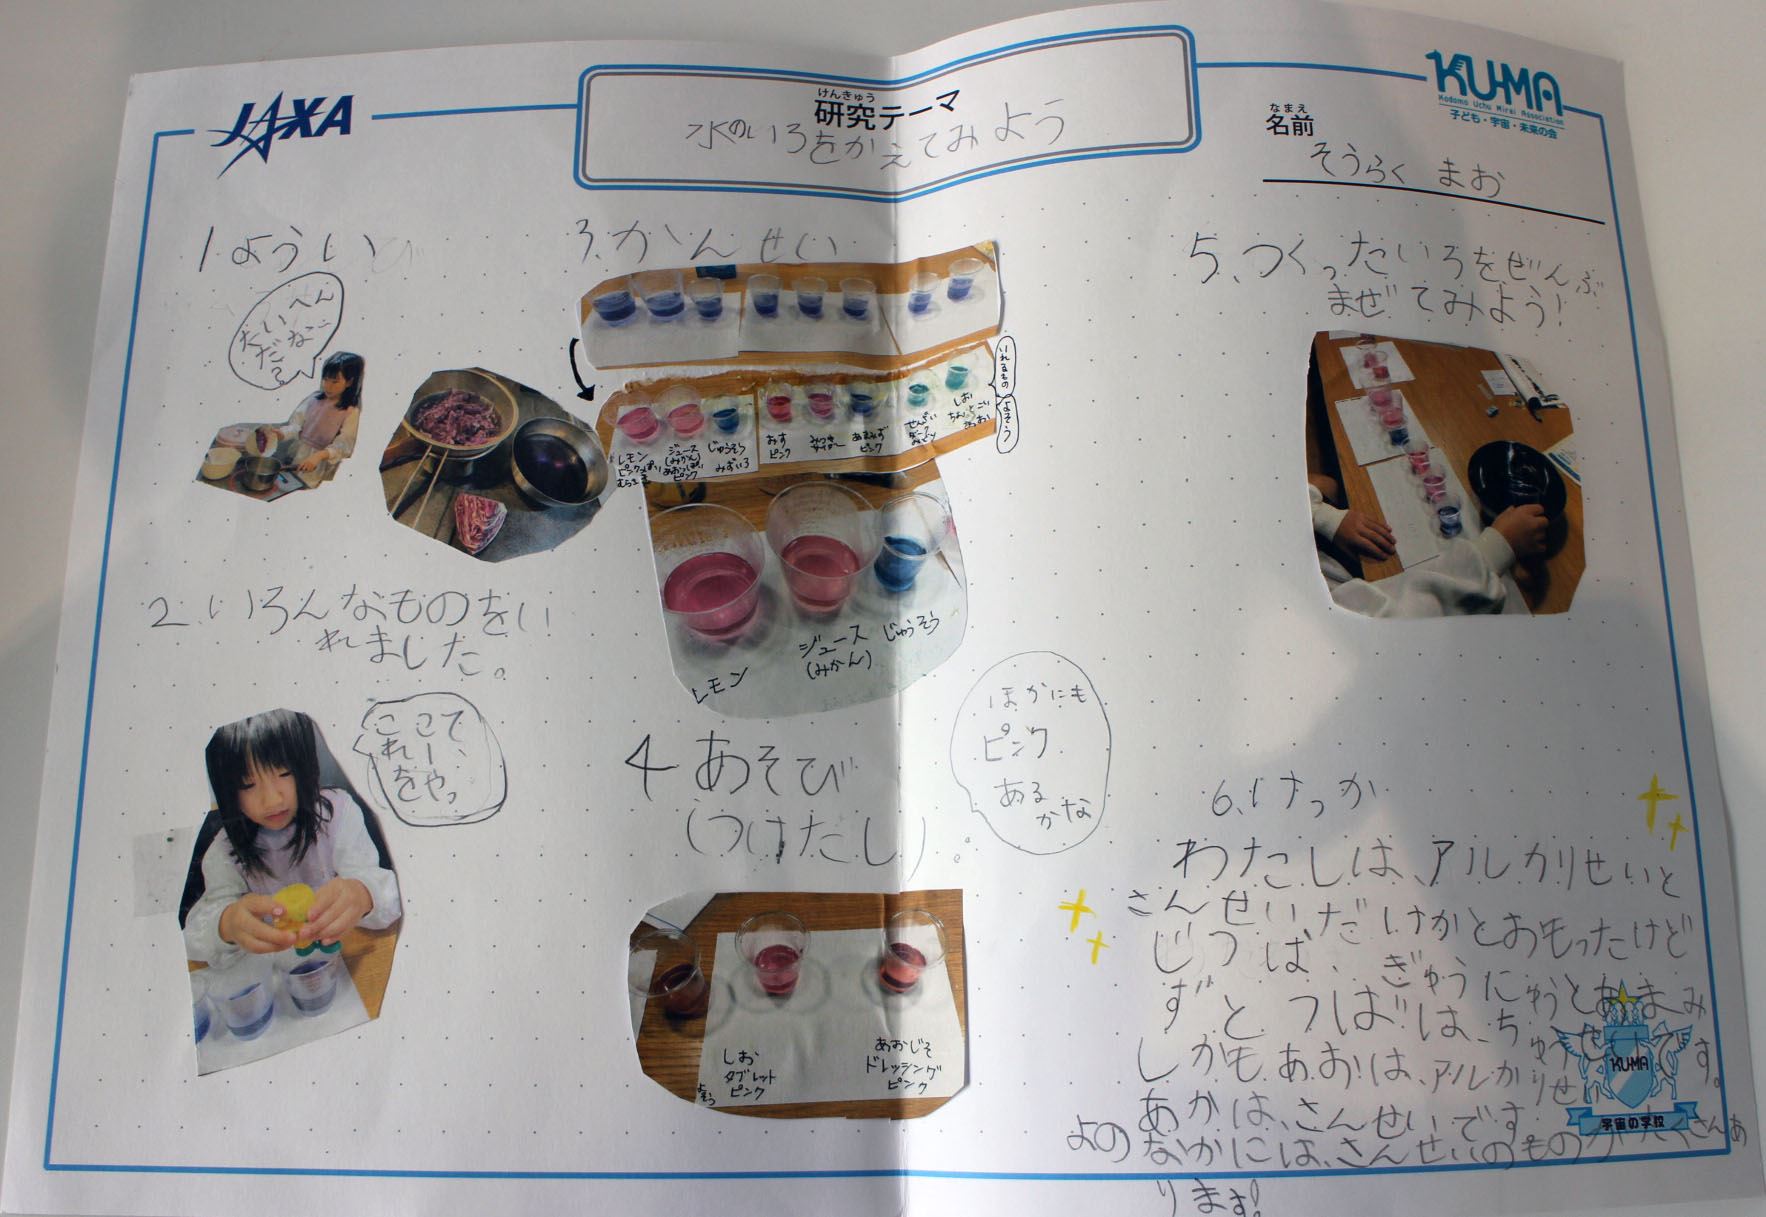 JAXA
けんきゅう
研究テーマ
水のいろをかえてみよう
KU-MA
Kodomo Uchu Mirai Association
子ども・宇宙・未来の会
なまえ
名前
そうらく まお
1.ようい
たいへん
だねー
3.かんせい
いれるもの
よそう
レモン
ジュース
(みかん)
じゅうそう
みずいろ
ピンク
ピンク
ピンク
レモン
ジュース
(みかん)
じゅうそう
2.いろんなものをい
れました。
4あそび
(つけたし)。
ほかにも
ピンク
ある
かな
しお
タブレット
ピンク
あおじそ
ドレッシング
ピンク
5.つくったいろをぜんぶ
まぜてみよう!
6.けっか
わたしは、アルカリせいと
さんせいだけかとおもったけど
じつは、ぎゅうにゅうとあまみ
ずとつばは、ちゅうせいです。
しかもあおは、アルカリせい
あかは、さんせいです
よのなかには、さんせいのものがたくさんあ
ります!
KUMA
宇宙の学校